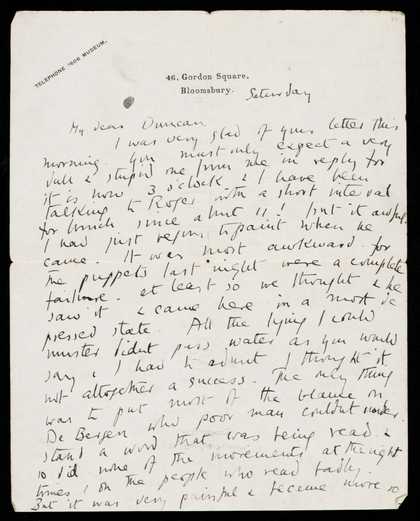 TELEPHONE 1606 MUSEUM.
46, Gordon Square,
Bloomsbury.
Saturday
My dear Duncan
I was very glad of your letter this
morning. You must only expect a very
dull & stupid one from me in reply for
it is now 3 o'clock & I have been
talking to Roger with a short interval
for lunch since about 11. Isn't it awful,
I had just begun to paint when he
came. It was most awkward for
the puppets last night were a complete
failure. at least so we thought & he
saw it & came here in a most de
pressed state. All the lying I could
muster didn't pass water as you would
say & I had to admit I thought it
not altogether a success. The only thing
was to put most of the blame on
De Bergen who poor man couldn't under
stand a word that was being read &
so did none of the movements at the right
times & on the people who read badly.
But it was very painful & became more so